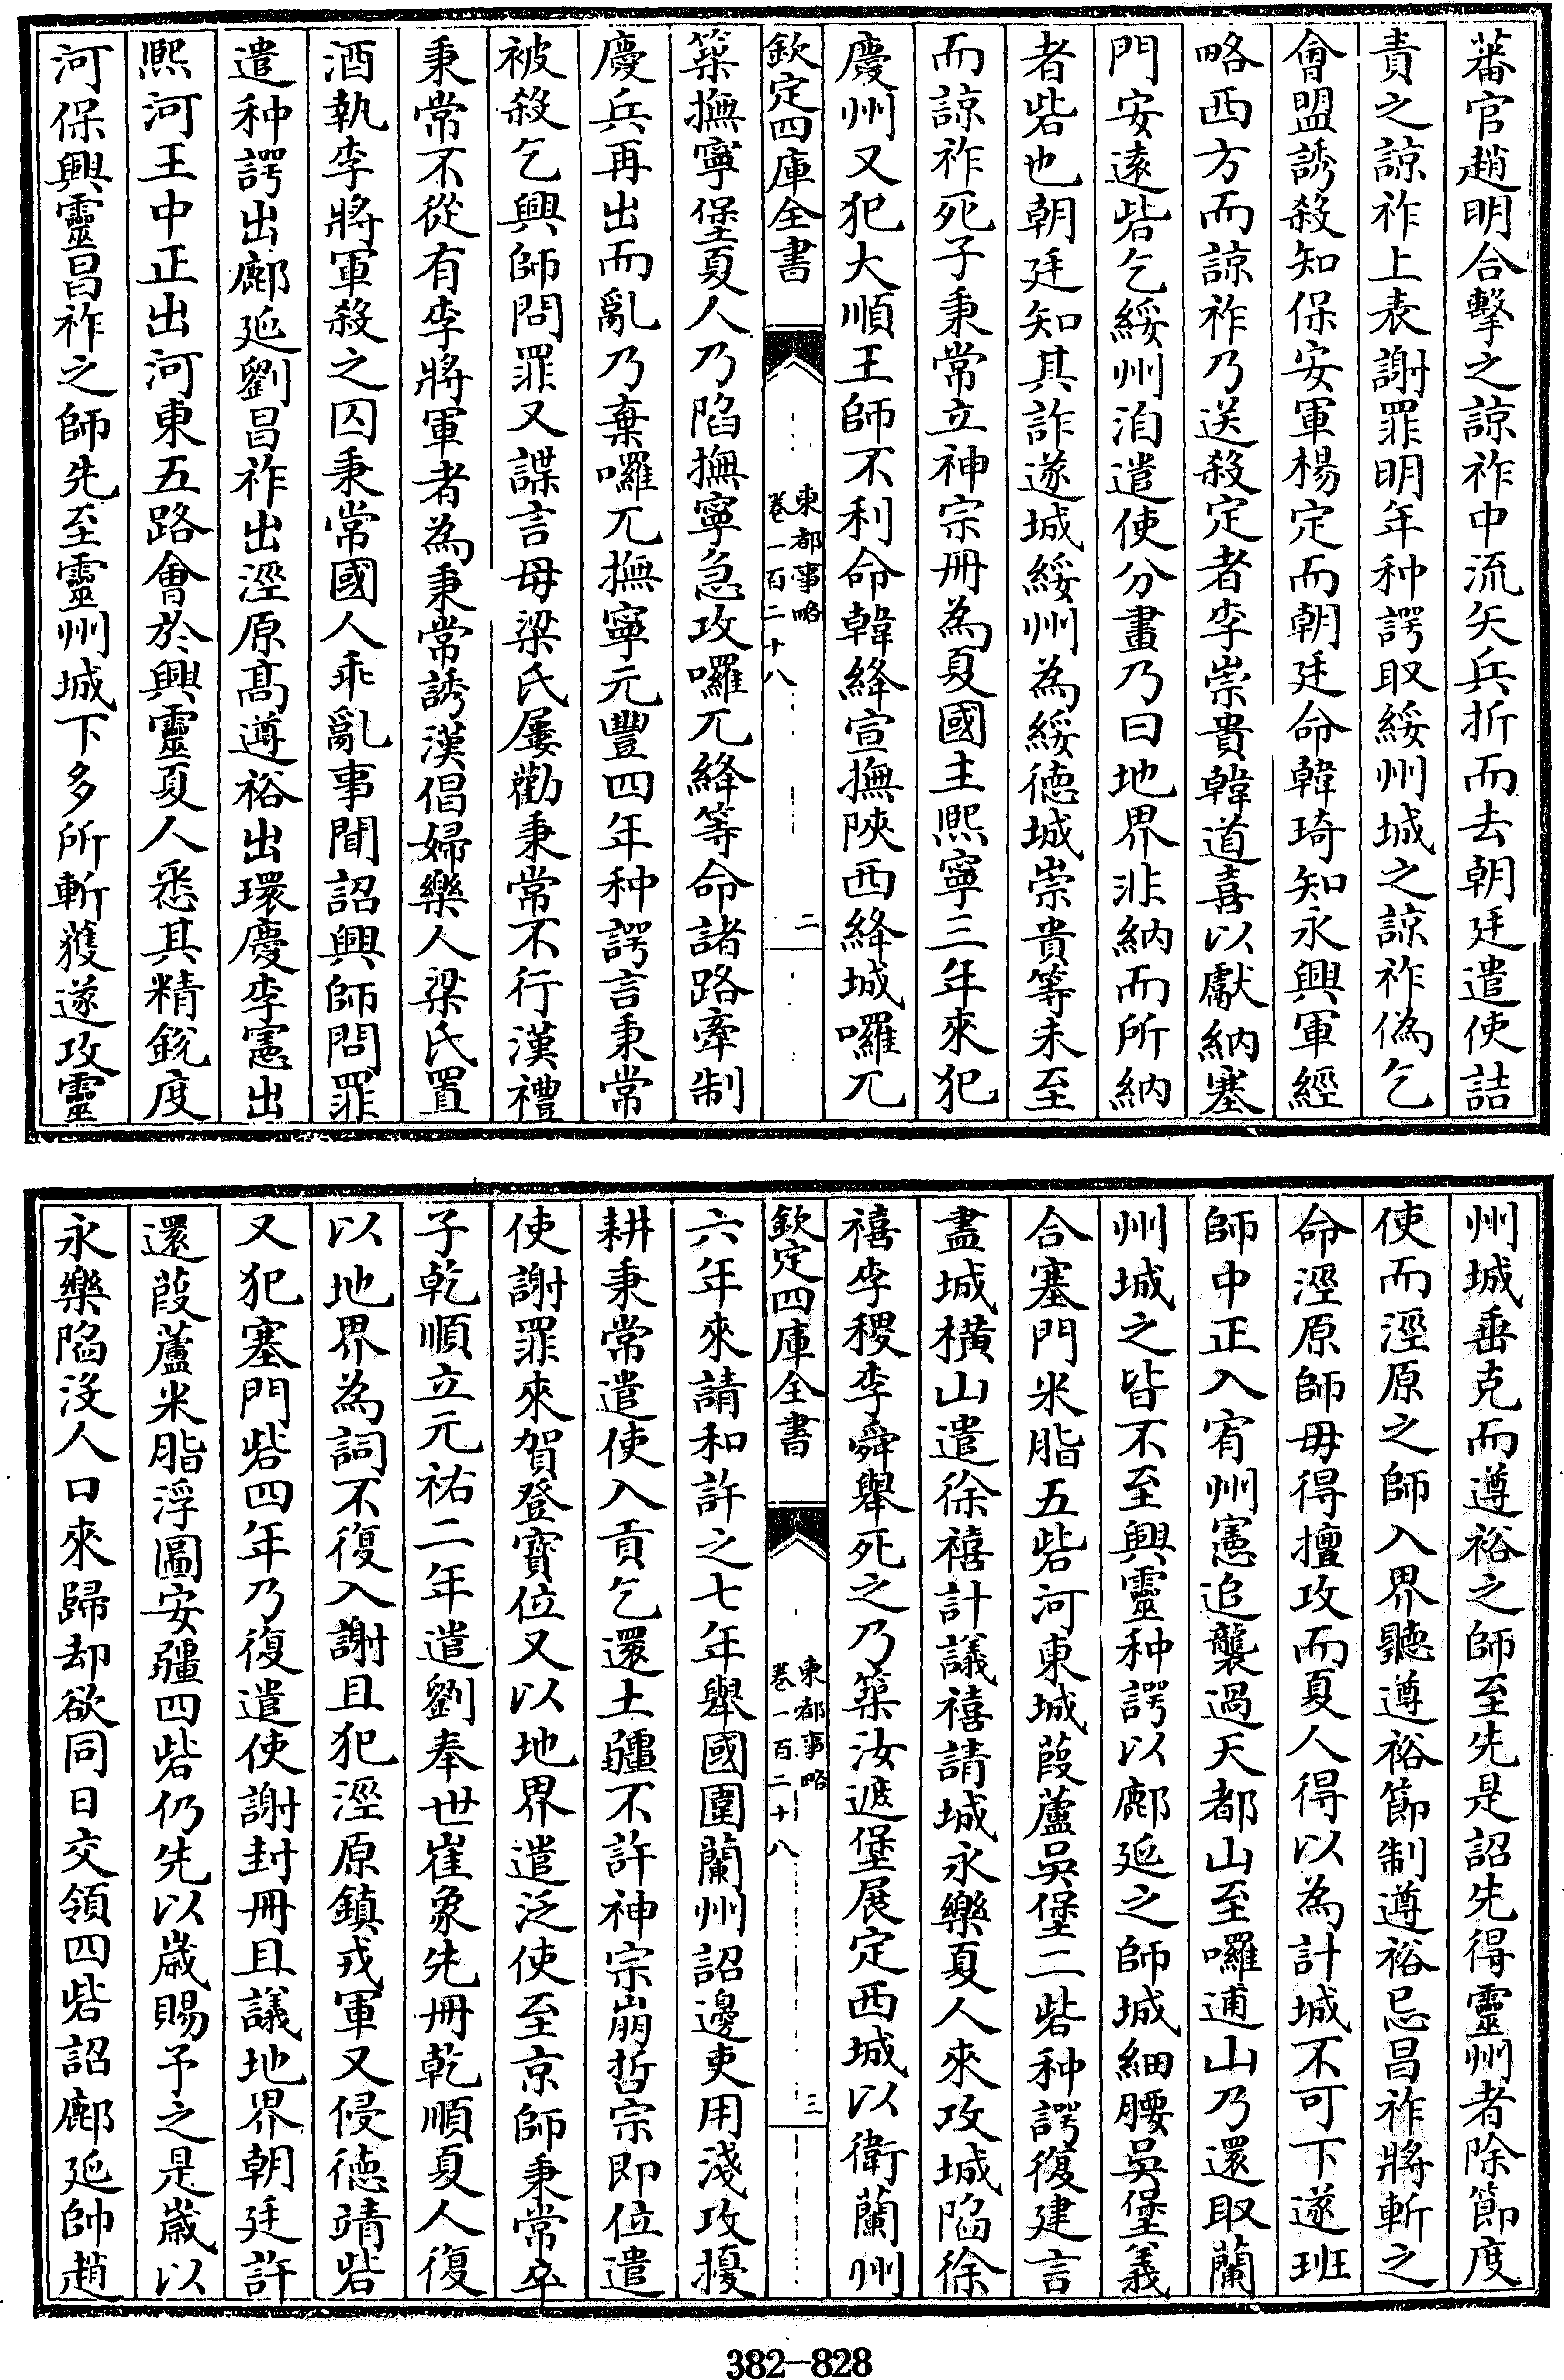 蕃官趙明合擊之諒祚中流矢兵折而去朝廷遣使詰
責之諒祚上表謝罪明年种諤取綏州城之諒祚偽乞
會盟誘殺知保安軍楊定而朝廷命韓琦知永興軍經
略西方而諒祚乃送殺定者李崇貴韓道喜以獻納塞
門安遠砦乞綏州洎遣使分畫乃曰地界非納而所納
者砦也朝廷知其詐遂城綏州為綏德城崇貴等未至
而諒祚死子秉常立神宗冊為夏國主熙寧三年來犯
慶州又犯大順王師不利命韓絳宣撫陝西絳城囉兀
欽定四庫全書
東都事略
卷一百二十八
二
築撫寧堡夏人乃陷撫寧急攻囉兀絳等命諸路牽制
慶兵再出而亂乃棄囉兀撫寧元豐四年种諤言秉常
被殺乞興師問罪又諜言母梁氏屢勸秉常不行漢禮
秉常不從有李將軍者為秉常誘漢倡婦樂人梁氏置
酒執李將軍殺之囚秉常國人乖亂事聞詔興師問罪
遣种諤出鄜延劉昌祚出涇原髙遵裕出環慶李憲出
熙河王中正出河東五路會於興靈夏人悉其精銳度
河保興靈昌祚之師先至靈州城下多所斬獲遂攻靈
州城垂克而遵裕之師至先是詔先得靈州者除節度
使而涇原之師入界聽遵裕節制遵裕忌昌祚將斬之
命涇原師毋得擅攻而夏人得以為計城不可下遂班
師中正入宥州憲追襲過天都山至囉逋山乃還取蘭
州城之皆不至興靈种諤以鄜延之師城細腰吳堡義
合塞門米脂五砦河東城葭蘆吳堡二砦种諤復建言
盡城橫山遣徐禧計議禧請城永樂夏人來攻城陷徐
禧李稷李舜舉死之乃築汝遮堡展定西城以衛蘭州
欽定四庫全書
東都事略
卷一百二十八
三
六年來請和許之七年舉國圍蘭州詔邊吏用淺攻擾
耕秉常遣使入貢乞還土疆不許神宗崩哲宗即位遣
使謝罪來賀登寶位又以地界遣泛使至京師秉常卒
子乾順立元祐二年遣劉奉世崔象先冊乾順夏人復
以地界為詞不復入謝且犯涇原鎮戎軍又侵德靖砦
又犯塞門砦四年乃復遣使謝封冊且議地界朝廷許
還葭蘆米脂浮圖安疆四砦仍先以歲賜予之是歲以
永樂陷沒人口來歸却欲同日交領四砦詔鄜延帥趙
382-828